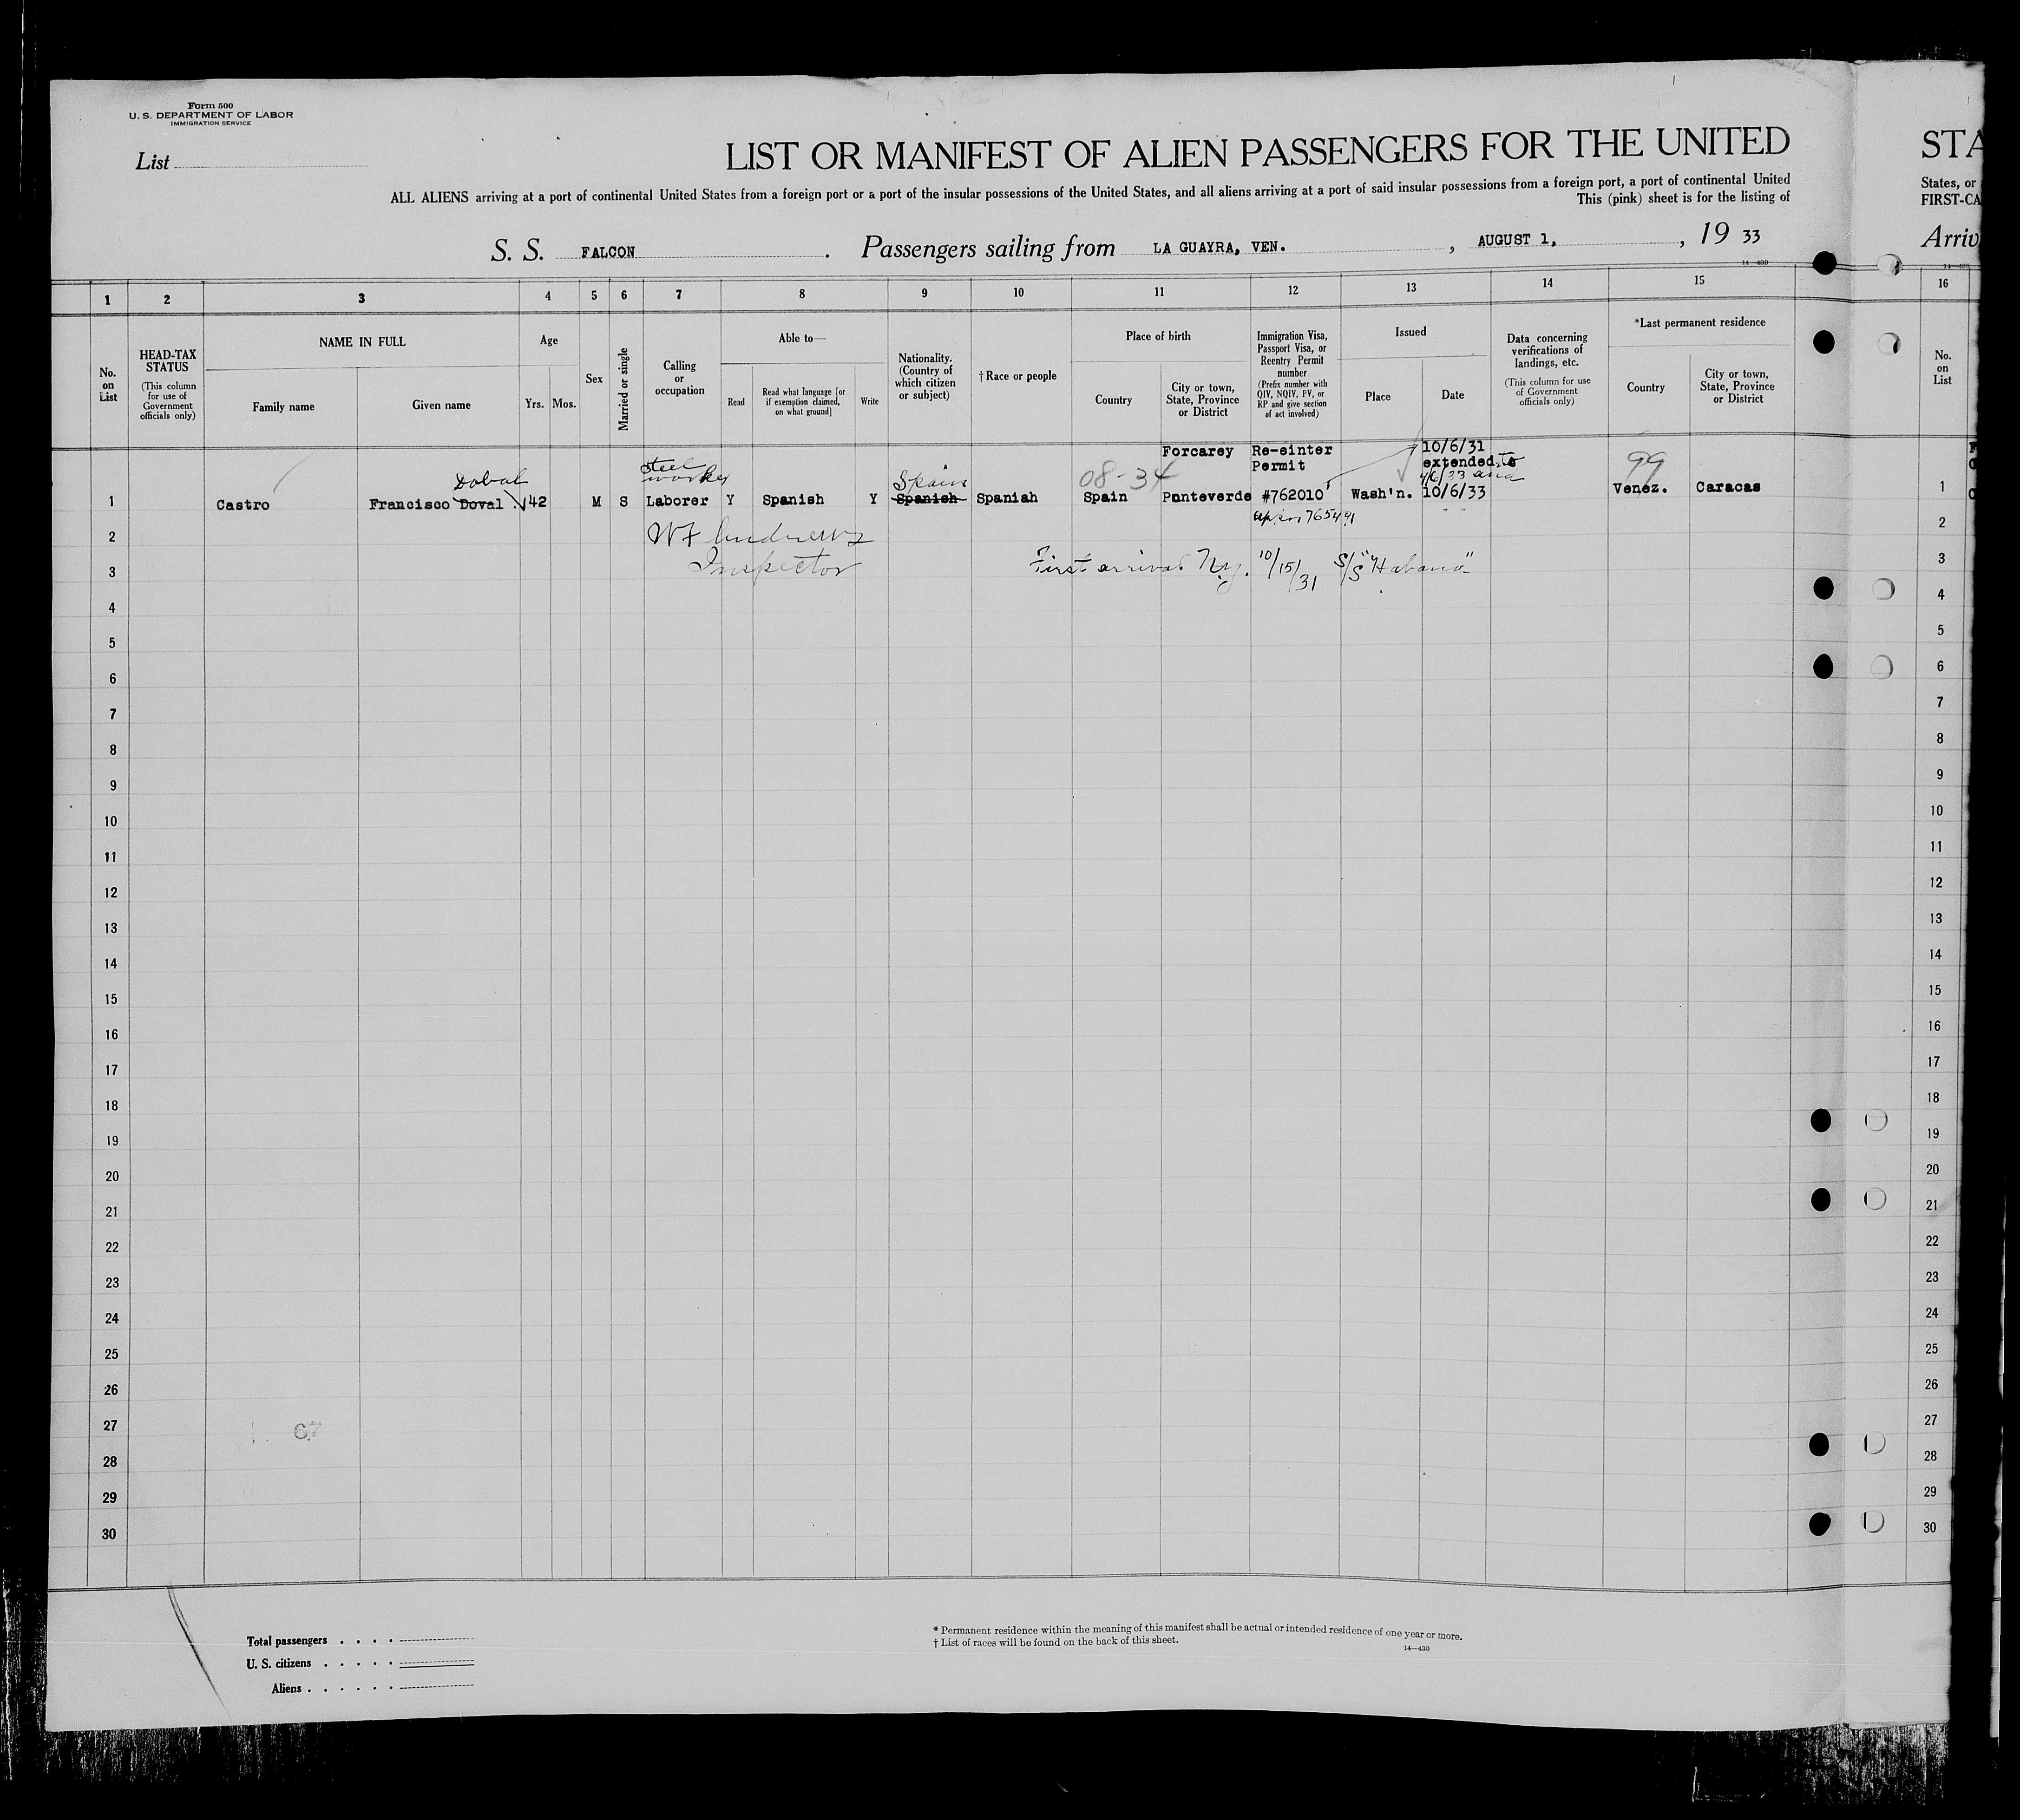 Form 500
U. S. DEPARTMENT OF LABOR
IMMIGRATION SERVICE
List
LIST OR MANIFEST OF ALIEN PASSENGERS FOR THE UNITED
STA
ALL ALIENS arriving at a port of continental United States from a foreign port or a port of the insular possessions of the United States, and all aliens arriving at a port of said insular possessions from a foreign port, a port of continental United
States, or
This (pink) sheet is for the listing of
FIRST-CA
S. S. FALCON . Passengers sailing from LA GUAYRA, VEN. , AUGUST 1, , 19 33
Arriv
14—430
1 2 3 4 5 6 7 8 9 10 11 12 13 14 15 16
No. on List
HEAD-TAX STATUS
(This column for use of Government officials only)
NAME IN FULL
Family name
Given name
Age
Yrs.
Mos.
Sex
Married or single
Calling or occupation
Able to—
Read
Read what language [or if exemption claimed, on what ground]
Write
Nationality. (Country of which citizen or subject)
†Race or people
Place of birth
Country
City or town, State, Province or District
Immigration Visa, Passport Visa, or Reentry Permit number
(Prefix number with QIV, NQIV, PV, or RP and give section of act involved)
Issued
Place
Date
Data concerning verifications of landings, etc.
(This column for use of Government officials only)
*Last permanent residence
Country
City or town, State, Province or District
No. on List
Forcarey Re-einter 10/6/31
Permit extended to
Dobal steel worker Spain 08-34 4/6/33 and 99
1 Castro Francisco Doval 42 M S Laborer Y Spanish Y Spanish Spanish Spain Ponteverde #762010 Wash'n. 10/6/33 Venez. Caracas 1
765491
2 W F Andrews 2
3 Inspector First arrival N.y. 10/15/31 S/S "Habana" 3
4 4
5 5
6 6
7 7
8 8
9 9
10 10
11 11
12 12
13 13
14 14
15 15
16 16
17 17
18 18
19 19
20 20
21 21
22 22
23 23
24 24
25 25
26 26
27 67 27
28 28
29 29
30 30
Total passengers . . . .
U. S. citizens . . . . .
Aliens . . . . . .
* Permanent residence within the meaning of this manifest shall be actual or intended residence of one year or more.
† List of races will be found on the back of this sheet.
14—430